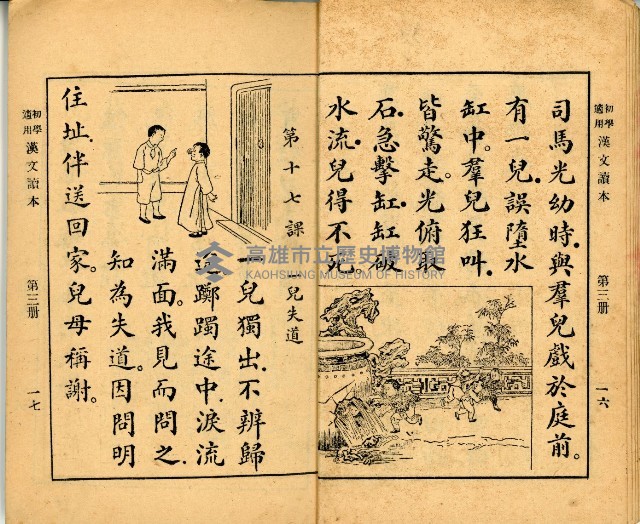 初學
適用
漢文讀本
第三册
一六
司馬光幼時與羣兒戲於庭前。
有一兒誤墮水
缸中。羣兒狂叫
皆驚走。光俯取
石急擊缸缸破
水流兒得不死。
第十七課
兒失道
兒獨出不辨歸
躑躅途中淚流
滿面。我見而問之
知為失道。因問明
住址伴送回家。兒母稱謝。
初學
適用
漢文讀本
第三册
一七
高雄市立歷史博物館
KAOHSIUNG MUSEUM OF HISTORY